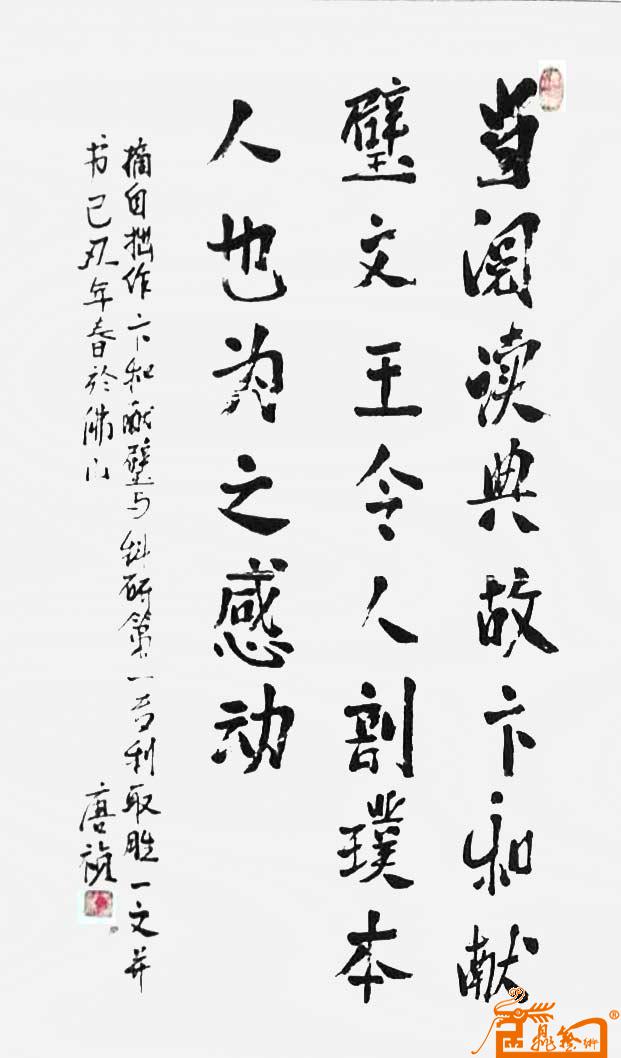 当阅读典故卞和献
璧文王令人剖璞本
人也为之感动
摘自拙作卞和献璧与科研第一专利取胜一文并
书己丑年春於
唐